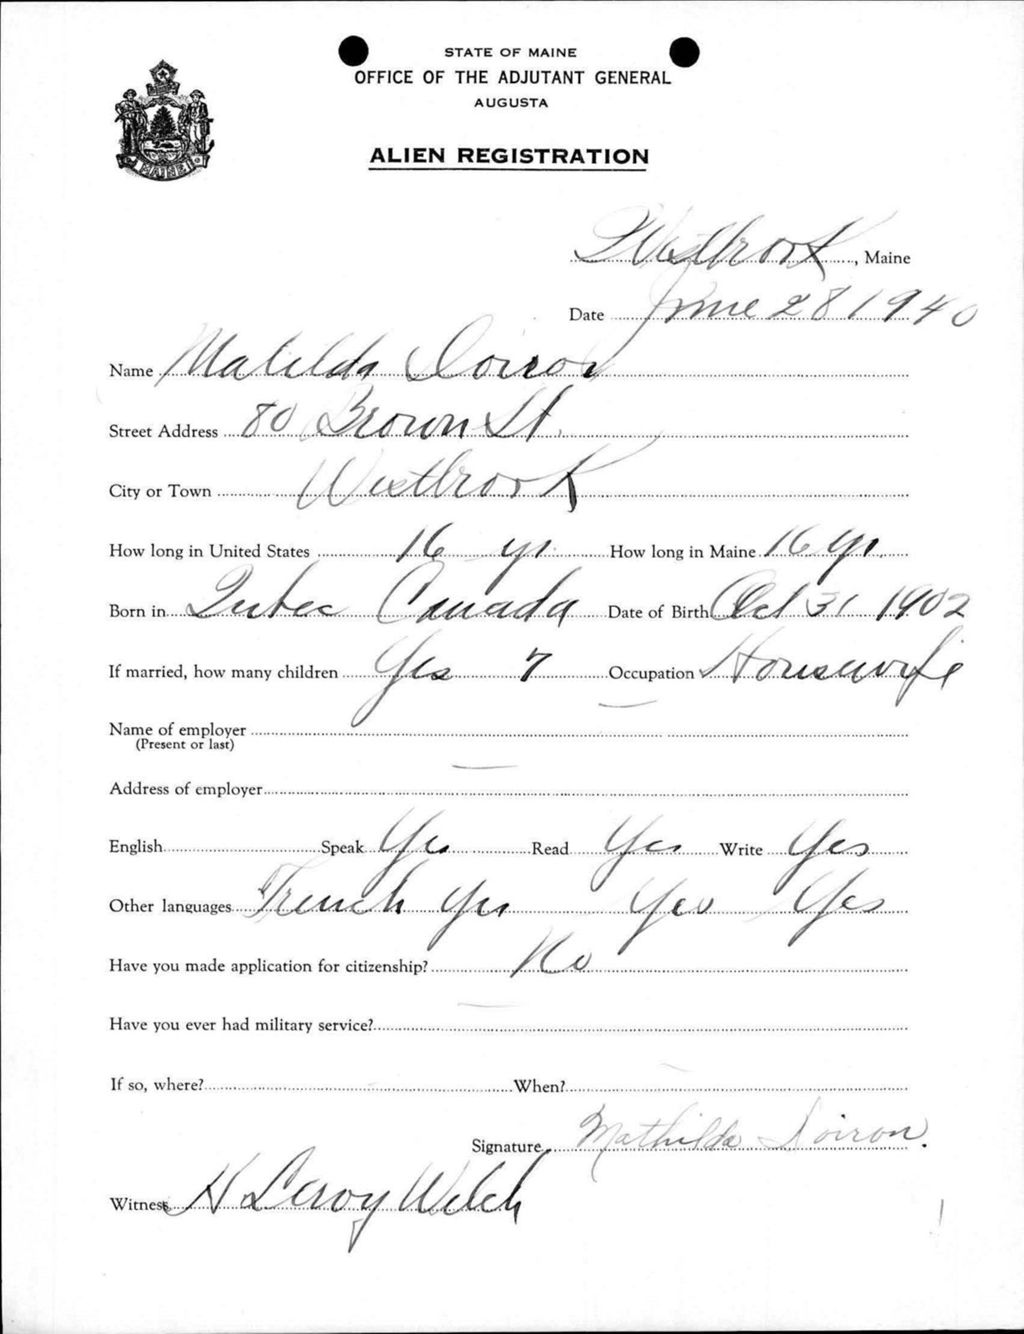 STATE OF MAINE
OFFICE OF THE ADJUTANT GENERAL
AUGUSTA
ALIEN REGISTRATION
MAINE
Westbrook, Maine
Date June 28 1940
Name Matilda Doiron
Street Address 80 Brown St.
City or Town Westbrook
How long in United States 16 yr How long in Maine 16 yr
Born in Quebec Canada Date of Birth Oct 31 1902
If married, how many children Yes 7 Occupation Housewife
Name of employer —
(Present or last)
Address of employer —
English Speak Yes Read Yes Write Yes
Other languages French Yes Yes Yes
Have you made application for citizenship? No
Have you ever had military service? —
If so, where? When?
Signature Mathilda Doiron.
Witness H Leroy Welch